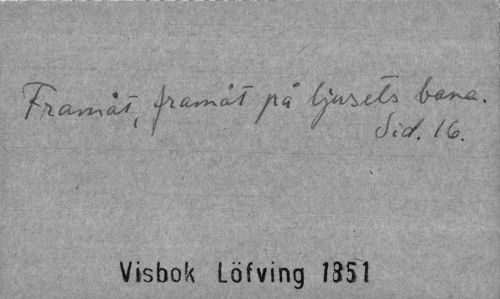 Framåt, framåt på ljusets bana.
Sid. 16.
Visbok Löfving 1851